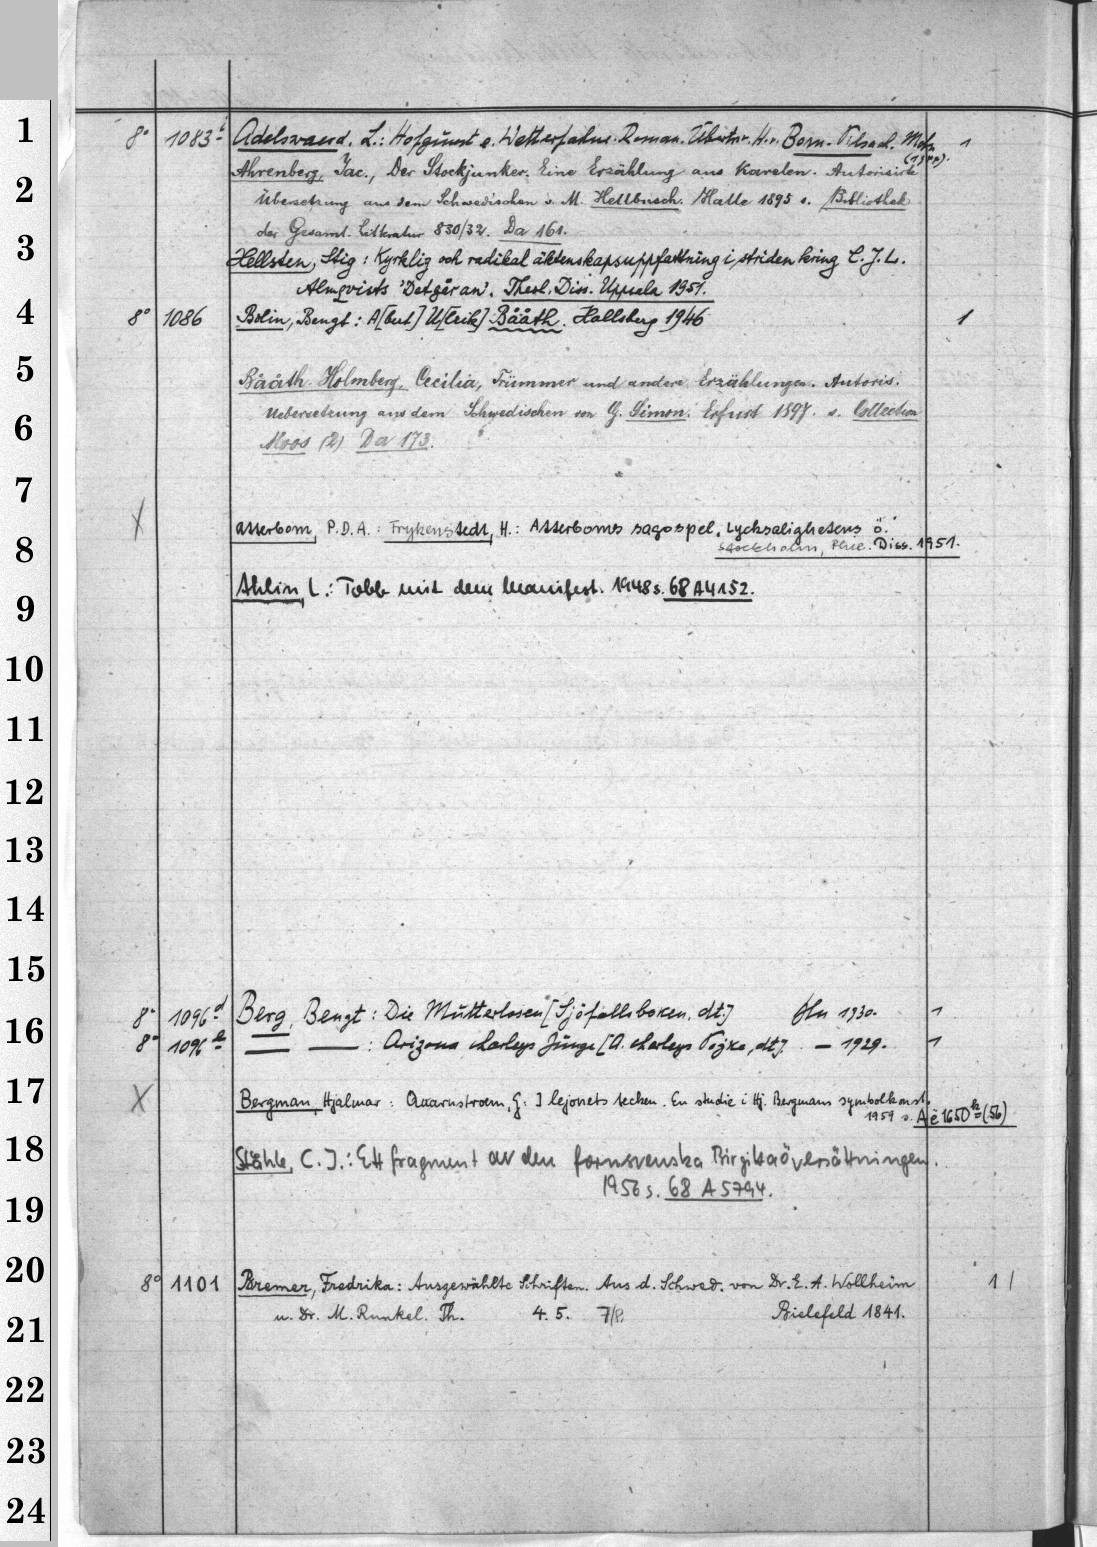 1
2
3
4
5
6
7
8
9
10
11
12
13
14
15
16
17
18
19
20
21
22
23
24
8° 1083 Adelswaerd, L.: Hofgunst e. Wetterfahne. Roman. H. v. Born- 1
Ahrenberg, Jac., Der Stockjunker. Eine Erzählung aus Karelen. Autorisirte
Übersetzung aus dem Schwedischen v. M. Hellbusch. Halle 1895 s. Bibliothek
der Gesamt. Litteratur 830/32. Da 161.
Hellsten, Stig: Kyrklig och radikal äktenskapsuppfattning i striden kring C. J. L.
Almqvists 'Det går an'. Theol. Diss. Uppsala 1951.
8° 1086 Bolin, Bengt: A[lbert] U[lrik] Bååth. Hallsberg 1946 1
Bååth-Holmberg, Cecilia, Trümmer und andere Erzählungen. Autoris.
Uebersetzung aus dem Schwedischen von G. Simon. Erfurt 1897. s. Collection
Moos (2) Da 173.
X Atterbom, P.D.A.: Frykenstedt, H.: Atterboms sagospel. Lycksalighetens ö.
Stockholm, Phil. Diss. 1951.
Ahlin, L.: Tobb mit dem Manifest. 1948 s. 68 A 4152.
8° 1096 d Berg, Bengt: Die Mutterlosen [Sjöfallsboken, dt.] Bln 1930. 1
8° 1096 e — — : Arizona Charleys Junge [A. Charleys Pojke, dt]. — 1929. 1
X Bergman, Hjalmar: Qvarnstroem, G: I lejonets tecken. En studie i Hj. Bergmans symbolkonst.
1959 s. Ae 1650 (56)
Ståhle, C. I.: Ett fragment av den fornsvenska Birgittaöversättningen.
1956 s. 68 A 5794.
8° 1101 Bremer, Fredrika: Ausgewählte Schriften. Aus d. Schwed. von Dr. E. A. Wollheim 1 /
u. Dr. M. Runkel. Th. 4. 5. Bielefeld 1841.